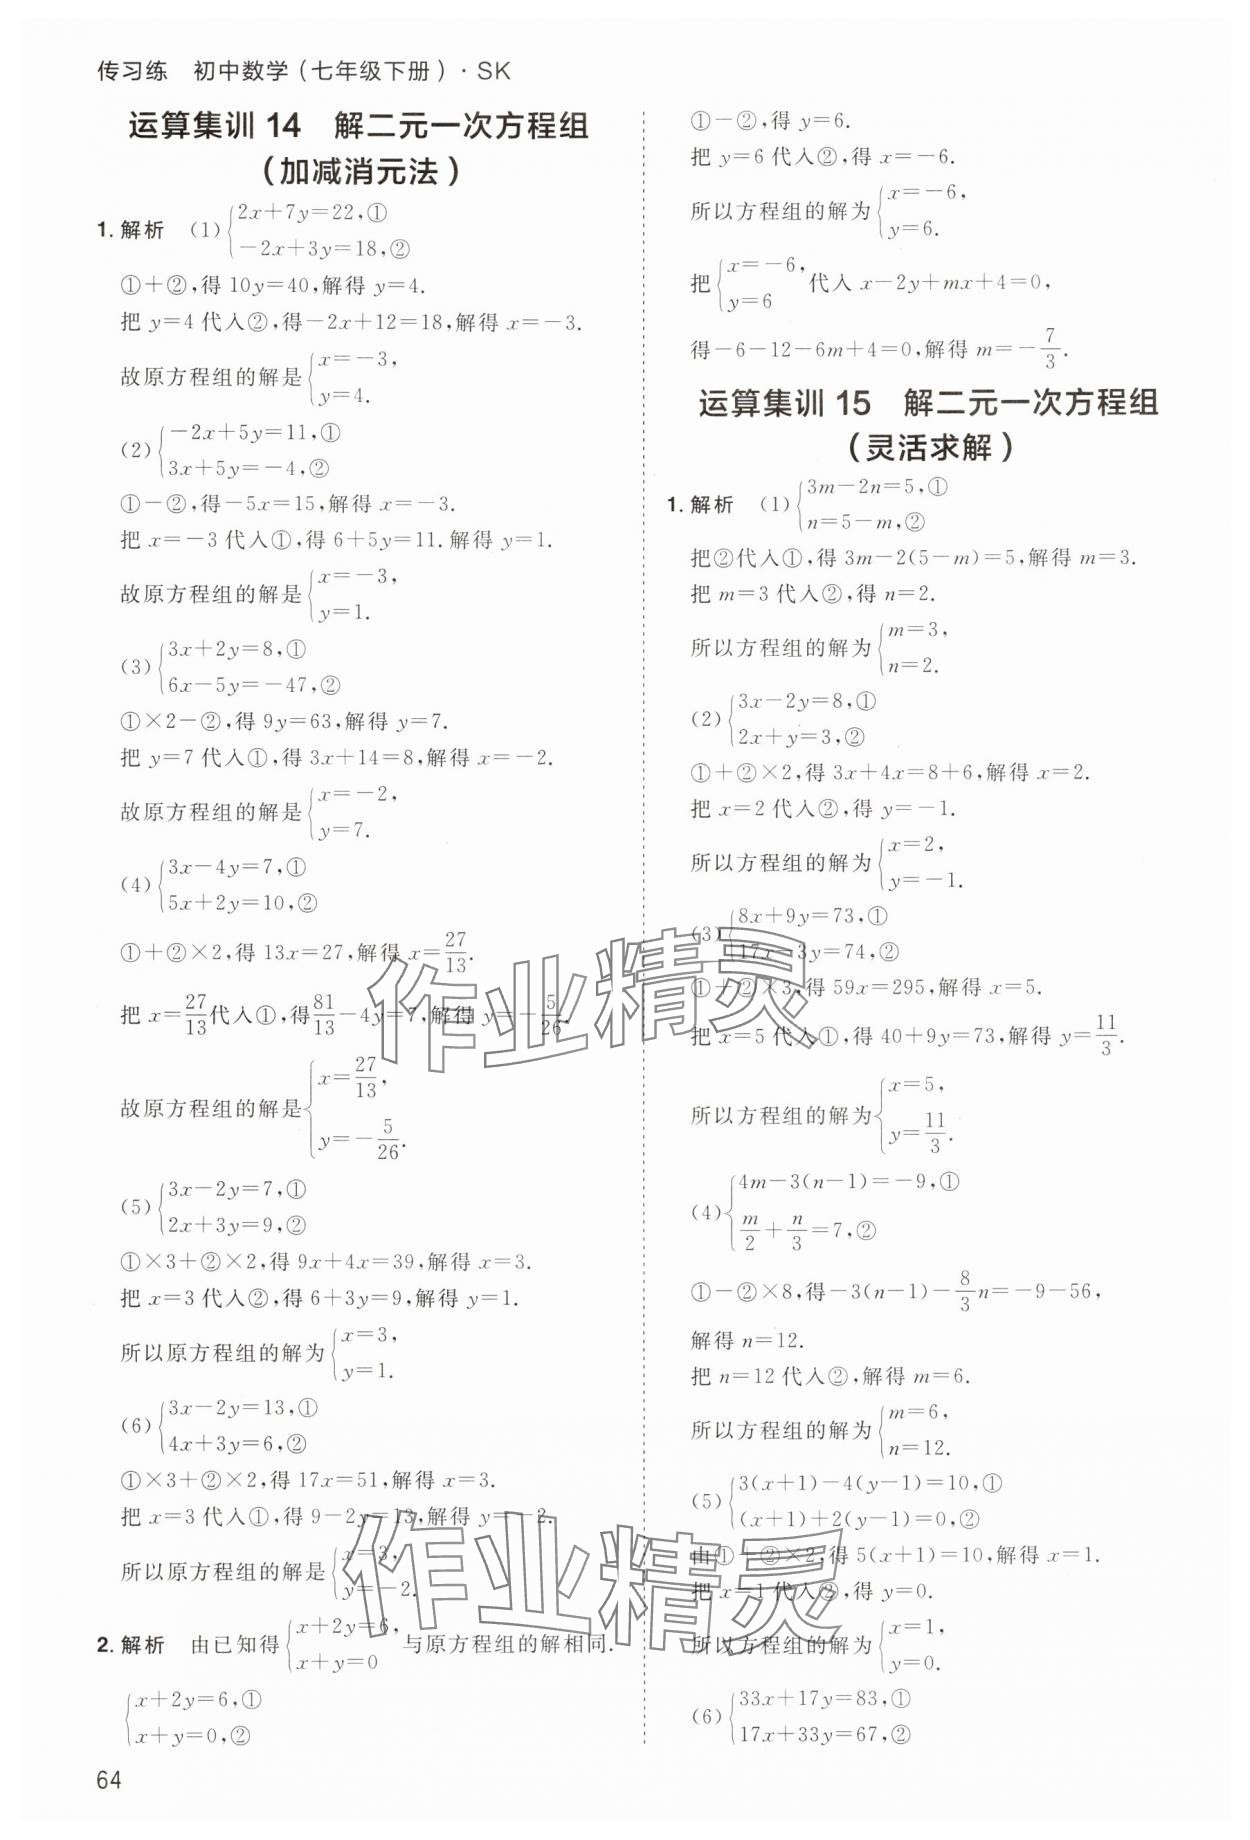 传习练 初中数学(七年级下册)·SK
运算集训 14 解二元一次方程组
(加减消元法)
1. 解析 (1) {2x+7y=22,①
-2x+3y=18,②
①+②,得 10y=40,解得 y=4.
把 y=4 代入②,得-2x+12=18,解得 x=-3.
故原方程组的解是 {x=-3,
y=4.
(2) {-2x+5y=11,①
3x+5y=-4,②
①-②,得-5x=15,解得 x=-3.
把 x=-3 代入①,得 6+5y=11.解得 y=1.
故原方程组的解是 {x=-3,
y=1.
(3) {3x+2y=8,①
6x-5y=-47,②
①×2-②,得 9y=63,解得 y=7.
把 y=7 代入①,得 3x+14=8,解得 x=-2.
故原方程组的解是 {x=-2,
y=7.
(4) {3x-4y=7,①
5x+2y=10,②
①+②×2,得 13x=27,解得 x=27/13.
把 x=27/13代入①,得81/13-4y=7,解得 y=-5/26.
故原方程组的解是 {x=27/13,
y=-5/26.
(5) {3x-2y=7,①
2x+3y=9,②
①×3+②×2,得 9x+4x=39,解得 x=3.
把 x=3 代入②,得 6+3y=9,解得 y=1.
所以原方程组的解为 {x=3,
y=1.
(6) {3x-2y=13,①
4x+3y=6,②
①×3+②×2,得 17x=51,解得 x=3.
把 x=3 代入①,得 9-2y=13,解得 y=-2.
所以原方程组的解为 {x=3,
y=-2.
2. 解析 由已知得 {x+2y=6,
x+y=0 与原方程组的解相同.
{x+2y=6,①
x+y=0,②
64
①-②,得 y=6.
把 y=6 代入②,得 x=-6.
所以方程组的解为 {x=-6,
y=6.
把 {x=-6,
y=6 代入 x-2y+mx+4=0,
得-6-12-6m+4=0,解得 m=-7/3.
运算集训 15 解二元一次方程组
(灵活求解)
1. 解析 (1) {3m-2n=5,①
n=5-m,②
把②代入①,得 3m-2(5-m)=5,解得 m=3.
把 m=3 代入②,得 n=2.
所以方程组的解为 {m=3,
n=2.
(2) {3x-2y=8,①
2x+y=3,②
①+②×2,得 3x+4x=8+6,解得 x=2.
把 x=2 代入②,得 y=-1.
所以方程组的解为 {x=2,
y=-1.
(3) {8x+9y=73,①
17x-3y=74,②
①+②×3,得 59x=295,解得 x=5.
把 x=5 代入①,得 40+9y=73,解得 y=11/3.
所以方程组的解为 {x=5,
y=11/3.
(4) {4m-3(n-1)=-9,①
m/2+n/3=7,②
①-②×8,得-3(n-1)-8/3n=-9-56,
解得 n=12.
把 n=12 代入②,解得 m=6.
所以方程组的解为 {m=6,
n=12.
(5) {3(x+1)-4(y-1)=10,①
(x+1)+2(y-1)=0,②
由①+②×2,得 5(x+1)=10,解得 x=1.
把 x=1代入②,得 y=0.
所以方程组的解为 {x=1,
y=0.
(6) {33x+17y=83,①
17x+33y=67,②
作业精灵
作业精灵